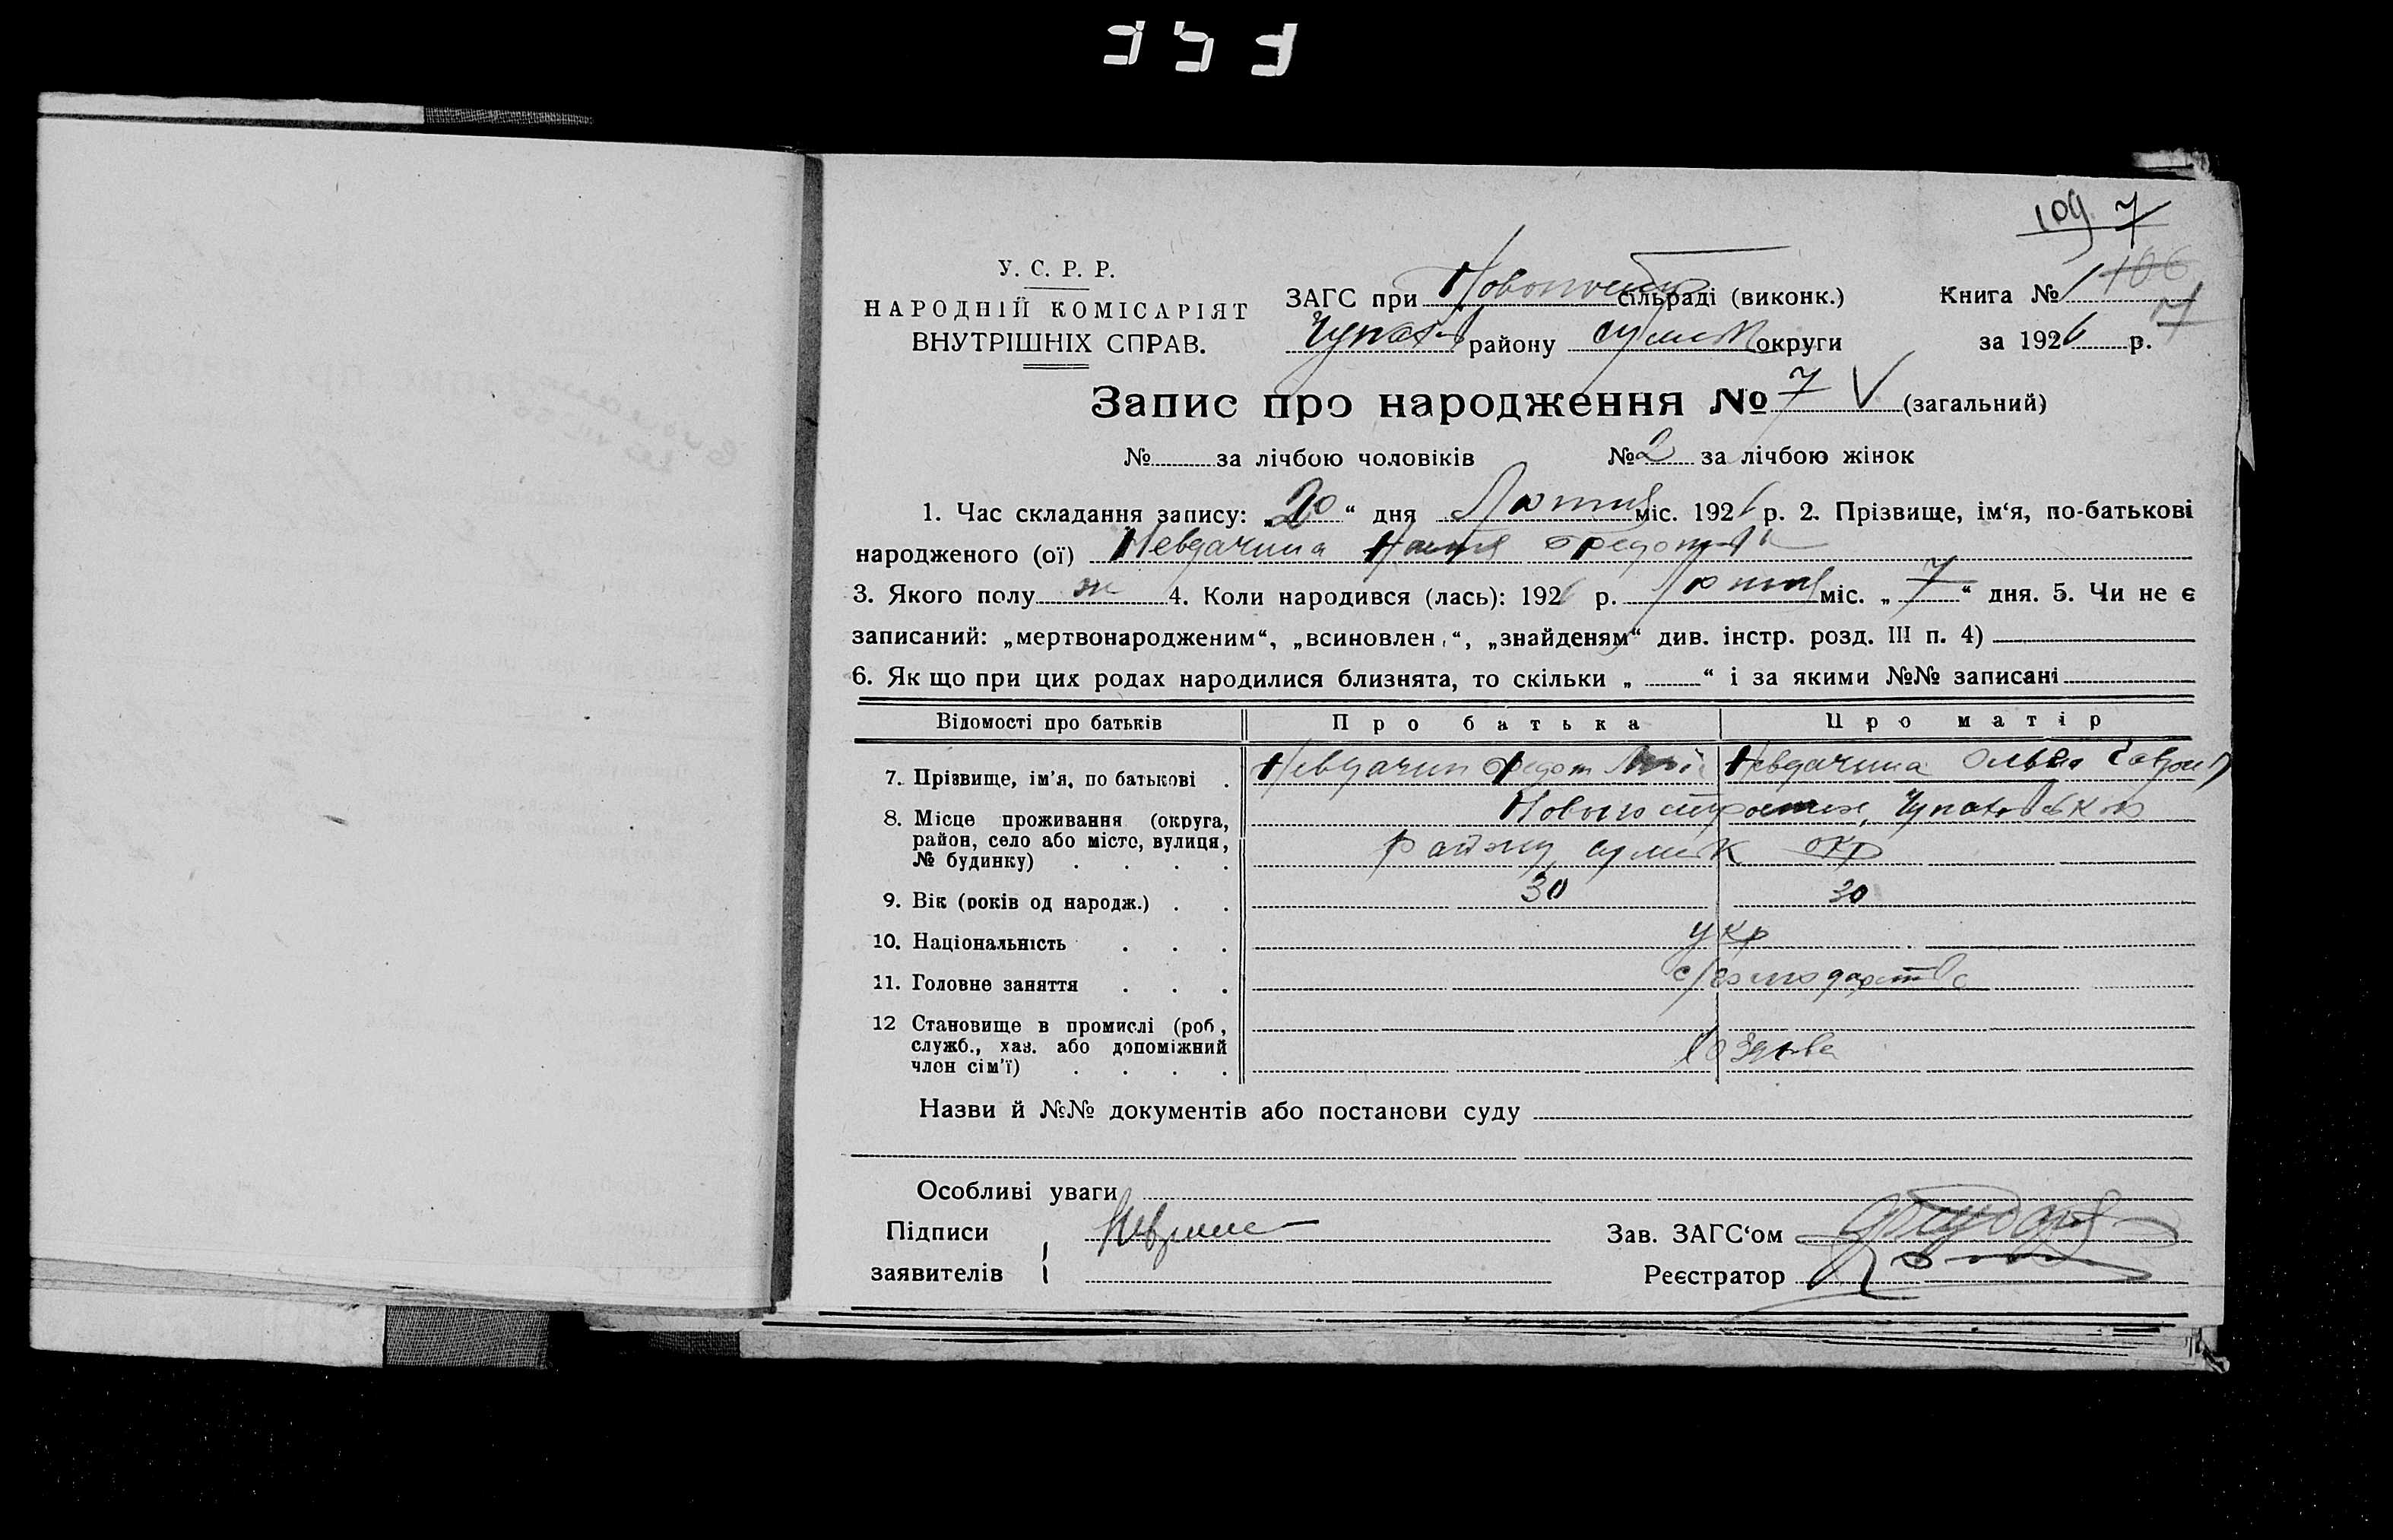 109 7
У. С. Р. Р.
НАРОДНІЙ КОМІСАРІЯТ
ВНУТРІШНІХ СПРАВ.
ЗАГС при сільраді (виконк.)
району сумськ округи
Книга № 1 106
7
за 1926 р.
Запис про народження № 7 V (загальний)
№ за лічбою чоловіків № 2 за лічбою жінок
1. Час складання запису: „20“ дня Лютня міс. 1926 р. 2. Прізвище, ім‘я, по-батькові
народженого (ої) Невдачина Настя Федотів
3. Якого полу ж 4. Коли народився (лась): 1926 р. Лютня міс. „7“ дня. 5. Чи не є
записаний: „мертвонародженим“, „всиновлен “, „знайденям“ див. інстр. розд. III п. 4)
6. Як що при цих родах народилися близнята, то скільки „ “ і за якими №№ записані
Відомості про батьків Про батька Про матір
7. Прізвище, ім’я, по батькові Невдачин Федот Невдачина Ольга
8. Місце проживання (округа,
район, село або місто, вулиця,
№ будинку)
району сумськ окр
9. Вік (років од народж.) 30 30
10. Національність укр
11. Головне заняття с/господарство
12 Становище в промислі (роб,
служб., хаз. або допоміжний
член сім’ї)
Назви й №№ документів або постанови суду
Особливі уваги
Підписи
заявителів
Зав. ЗАГС‘ом
Реєстратор